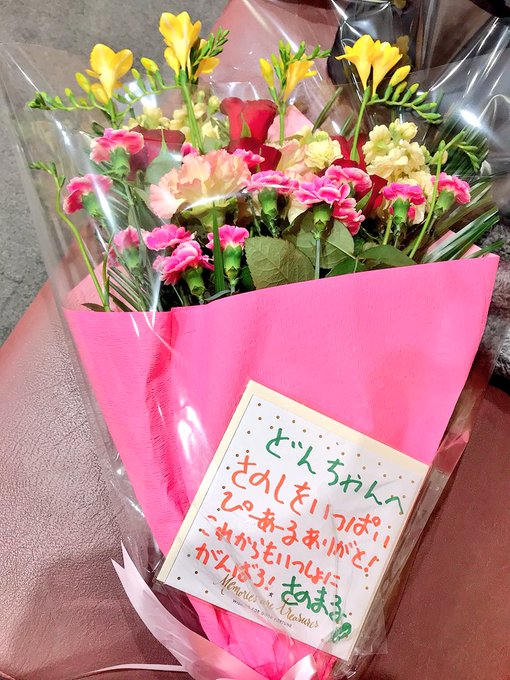 どんちゃんへ
さのしをいっぱい
ぴーあーるありがと!
これからもいっしょに
がんばろ! さのまる
Memories are Treasures
WISHING FOR GOOD FORTUNE